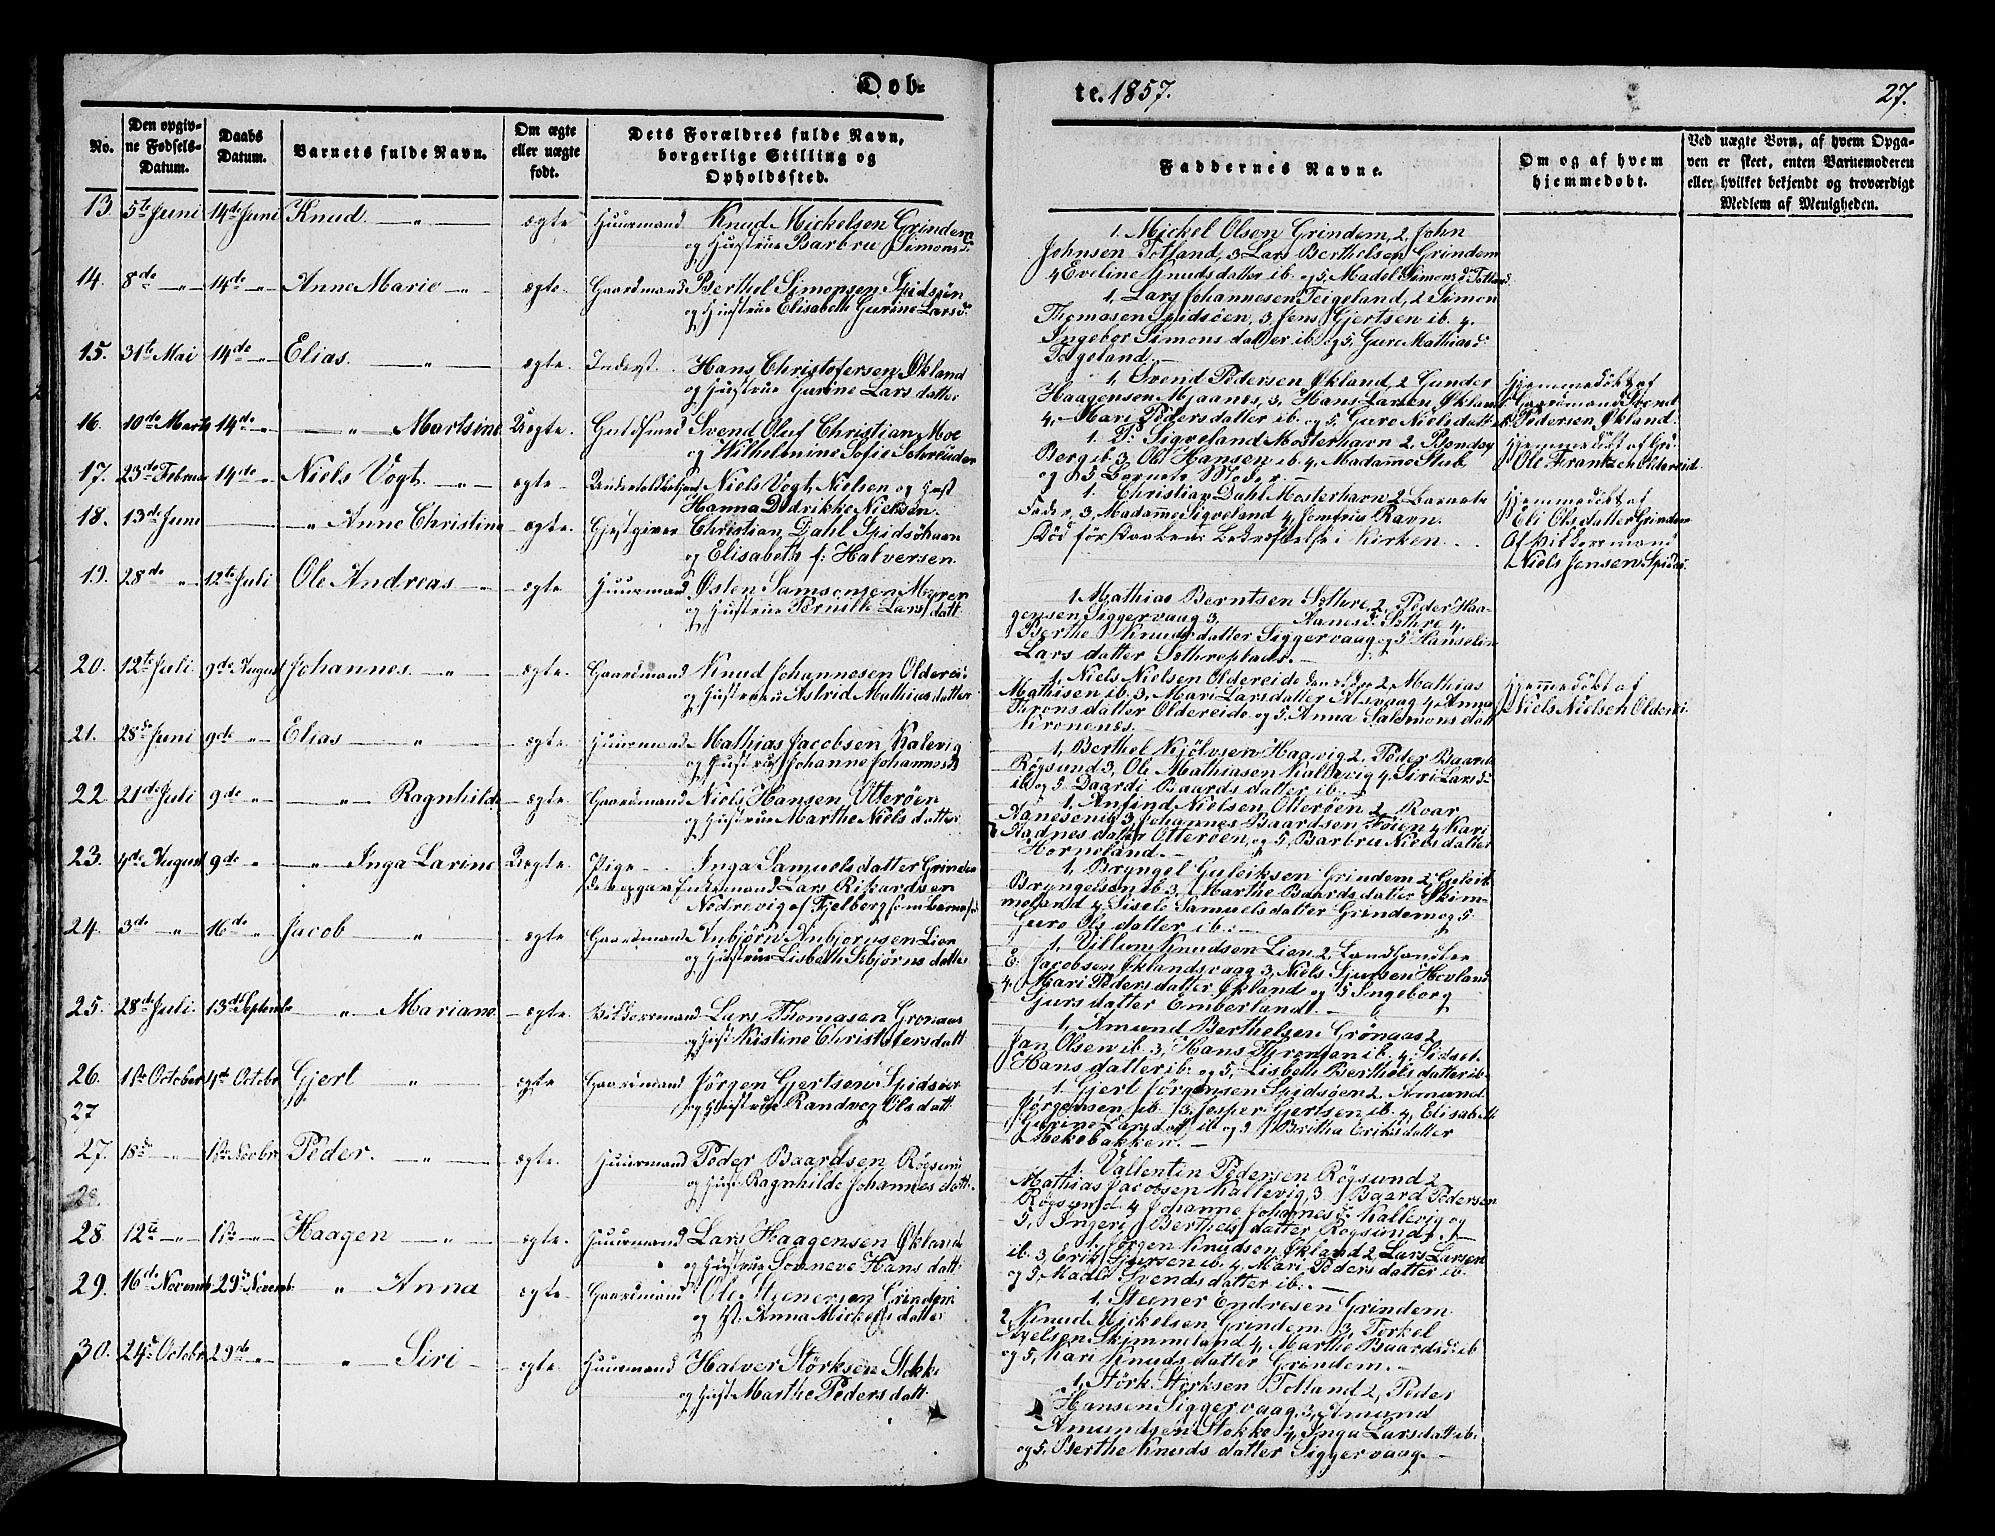 Døb-
te. 1857.
27.
No.
Den opgivne Fødsels-Datum.
Daabs Datum.
Barnets fulde Navn.
Om ægte eller uægte født.
Dets Forældres fulde Navn, borgerlige Stilling og Opholdssted.
Faddernes Navne.
Om og af hvem hjemmedøbt.
Ved uægte Børn, af hvem Opgaven er skeet, enten Barnemoderen eller hvilket bekjendt og troværdigt Medlem af Menigheden.
13. 5te Juni 14de Juni Knud — „ ægte Huurmand Knud Mickelsen Grindem
og Hustrue Barbru Simonsd:
1. Mickel Olsen Grindem, 2, John
Johnsen Totland, 3 Lars Berthelsen Grindem
4 Eveline Knudsdatter ib. og 5, Madel Simonsd: Totland.
14. 8de „ 14de „ Anne Marie „ ægte. Gaardmand Berthel Simonsen Spidsøen
og Hustrue Elisabeth Gurine Larsd:
1, Lars Johannesen Teigeland, 2 Simon
Thomasen Spidsøen, 3, Jens Gjertsen ib. 4.
Ingebor Simonsdatter ib. og 5, Guro Mathiasd:
Teigeland. —
15. 31te Mai 14de „ Elias. „ ægte. Inderst. Hans Christofersen Økland
og Hustrue Gurine Larsdatter
1, Svend Pedersen Økland, 2 Gunder
Haagensen Mjaanes, 3, Hans Larsen Økland
4, Mari Pedersdatter ib. og 5. Gure Nielsdatter
Hjemmedøbt af
Gaardmand Svend
Pedersen Økland.
16. 10de Marts 14de „ — „ Martsine Uægte. Guldsmed Svend Oluf Christian Moe
og Wilhelmine Sofie Schreuder
1. P: Sigveland Mosterhavn 2. Bendsy
Berg ib 3, Ole Hansen ib. 4. Madamme Stub
og 5 Barnets Moder. —
Hjemmedøbt af
Ole Frantzen Oldereid.
17. 23de Februar 14de „ Niels Vogt. — „ ægte Niels Vogt Nielsen og Hust.
Hanna Didrikke Nielsen.
1. Christian Dahl Mosterhavn 2 Barnets
Fader, 3, Madamme Sigveland 4, Jomfru Ravn.
Hjemmedøbt af
Eli Olsdatter Grindem
18. 13de Juni — „ Anne Christine ægte. Gjestgiver Christian Dahl Spidsøhavn
og Elisabeth f: Halversen.
Død før Daabens Bekræftelse i Kirken.
Af
Niels Jensen Spidsø.
19. 28de „ 12te Juli Ole Andreas „ ægte Huurmand Østen Samsonsen
og Hustrue Pernille Larsdatt.
1 Mathias Berntsen Sethre, 2, Peder Haa-
gensen Siggervaag 3, Aanesd: Sethre 4.
Berthe Knudsdatter Siggervaag og 5 Hanseline
Larsdatter Sethreplads. —
20. 12te Juli 9de August Johannes. „ ægte Gaardmand Knud Johannesen Oldereid
og Hustrue Astrid Mathiasdatter
1, Niels Nielsen Oldereide den ældre 2, Mathias
Mathisen ib. 3, Mari Larsdatter Alsvaag 4, Anna
Thronsdatter Oldereide og 5. Anna Salemonsdatt
Hjemmedøbt af
Niels Nielsen Oldereid.
21. 28de Juni 9de „ Elias — „ ægte. Huurmand Mathias Jacobsen Kalevig
og Hustrue Johanne Johannesd:
1, Berthel Kjølvsen Haavig 2, Peder Baards
Røgsund 3, Ole Mathiasen Kallevig 4, Siri Larsd:
ib og 5. Daardi Baardsdatter ib. —
22 21de Juli 9de „ — „ Ragnhilde ægte. Gaardmand Niels Hansen Otterøen
og Hustrue Marthe Nielsdatter
1, Anfind Nielsen Otterøen 2, Roar
Aanesen ib 3, Johannes Baardsen Føien 4 Kari
Aadnesdatter Otterøen, og 5, Barbru Nielsdatter
Horneland. —
23. 4de August 9de „ „ Inga Larine Uægte Pige Inga Samuelsdatter Grindem
Lars Rikardsen
Nedrevig af Fjelberg som Barnefad.
1, Bryngel Guleiksen Grindem 2, Guleik
Bryngelsen ib 3, Marthe Baardsdatter Skim-
meland 4, Sisele Samuelsdatter Grindem og 5
Guro Olsdatter ib. —
24. 3de „ 16de „ Jacob „ ægte Gaardmand Anbjørn Anbjørnsen Lien
og Hustrue Lisbeth Asbjørnsdatter
1. Villum Knudsen Lien 2, Landhandler
E. Jacobsen Øklandsvaag 3, Niels Sjursen Hovland
4, Mari Pedersdatter Økland og 5 Ingeborg
Sjursdatter Emberland. —
25. 28de Juli. 13de September „ Mariane. ægte. Lars Thomasen Grønaas
og Hust. Kistine Christofersdatt
1, Amund Berthelsen Grønaas 2,
Jan Olsen ib. 3, Hans Thronsen ib. 4, Sidsel
Hansdatter ib. og 5, Lisbeth Berthelsdatter ib.
26. 1ste October 4de Octobr Gjert „ ægte Gaardmand Jørgen Gjertsen Spidsøen
og Hustrue Randveg Olsdatt.
1. Gjert Jørgensen Spidsøen 2. Amund
Jørgensen ib. 3, Jesper Gjertsen ib. 4, Elisabeth
Gurine Larsdatt ib og 5 Britha Eriksdatter
Bekebakken. —
27
27. 18de „ 1ste Novbr Peder. — „ ægte. Huurmand Peder Baardsen Røgsund
og Hust. Ragnhilde Johannesdatt.
1. Vallentin Pedersen Røgsund 2
Mathias Jacobsen Kallevig, 3 Baard Pedersen
Røgsund 4 Johanne Johannesd: Kallevig og
5, Ingeri Berthelsdatter Røgsund. —
28.
28 12te „ 1ste „ Haagen — „ ægte. Huurmand Lars Haagensen Økland
og Hustrue Sonneve Hansdatt.
1. Jørgen Knudsen Økland 2 Lars Larsen
ib. 3, Erik Sjursen ib. 4, Mari Pedersdatter ib.
og 5, Madle Svendsdatter ib. —
29. 16de Novemb 29de Novemb. „ Anna ægte. Gaardmand Ole Stenersen Grindem
og H. Anna Mickelsdatter
1. Steener Endresen Grindem.
2, Knud Mickelsen Grindem 3, Torkel
Axelsen Skimmeland 4, Marthe Baardsd: ib
og 5, Kari Knudsdatter Grindem. —
30. 24de Octobr 29de „ „ Siri ægte. Huurmand Halver Størksen Stokke
og Hust Marthe Pedersdatt:
1, Størk Størksen Totland 2, Peder
Hansen Siggervaag, 3, Amund
Amundsen Stokke, 4, Inga Larsdatt ib.
og 5, Berthe Knudsdatter Siggervaag. —